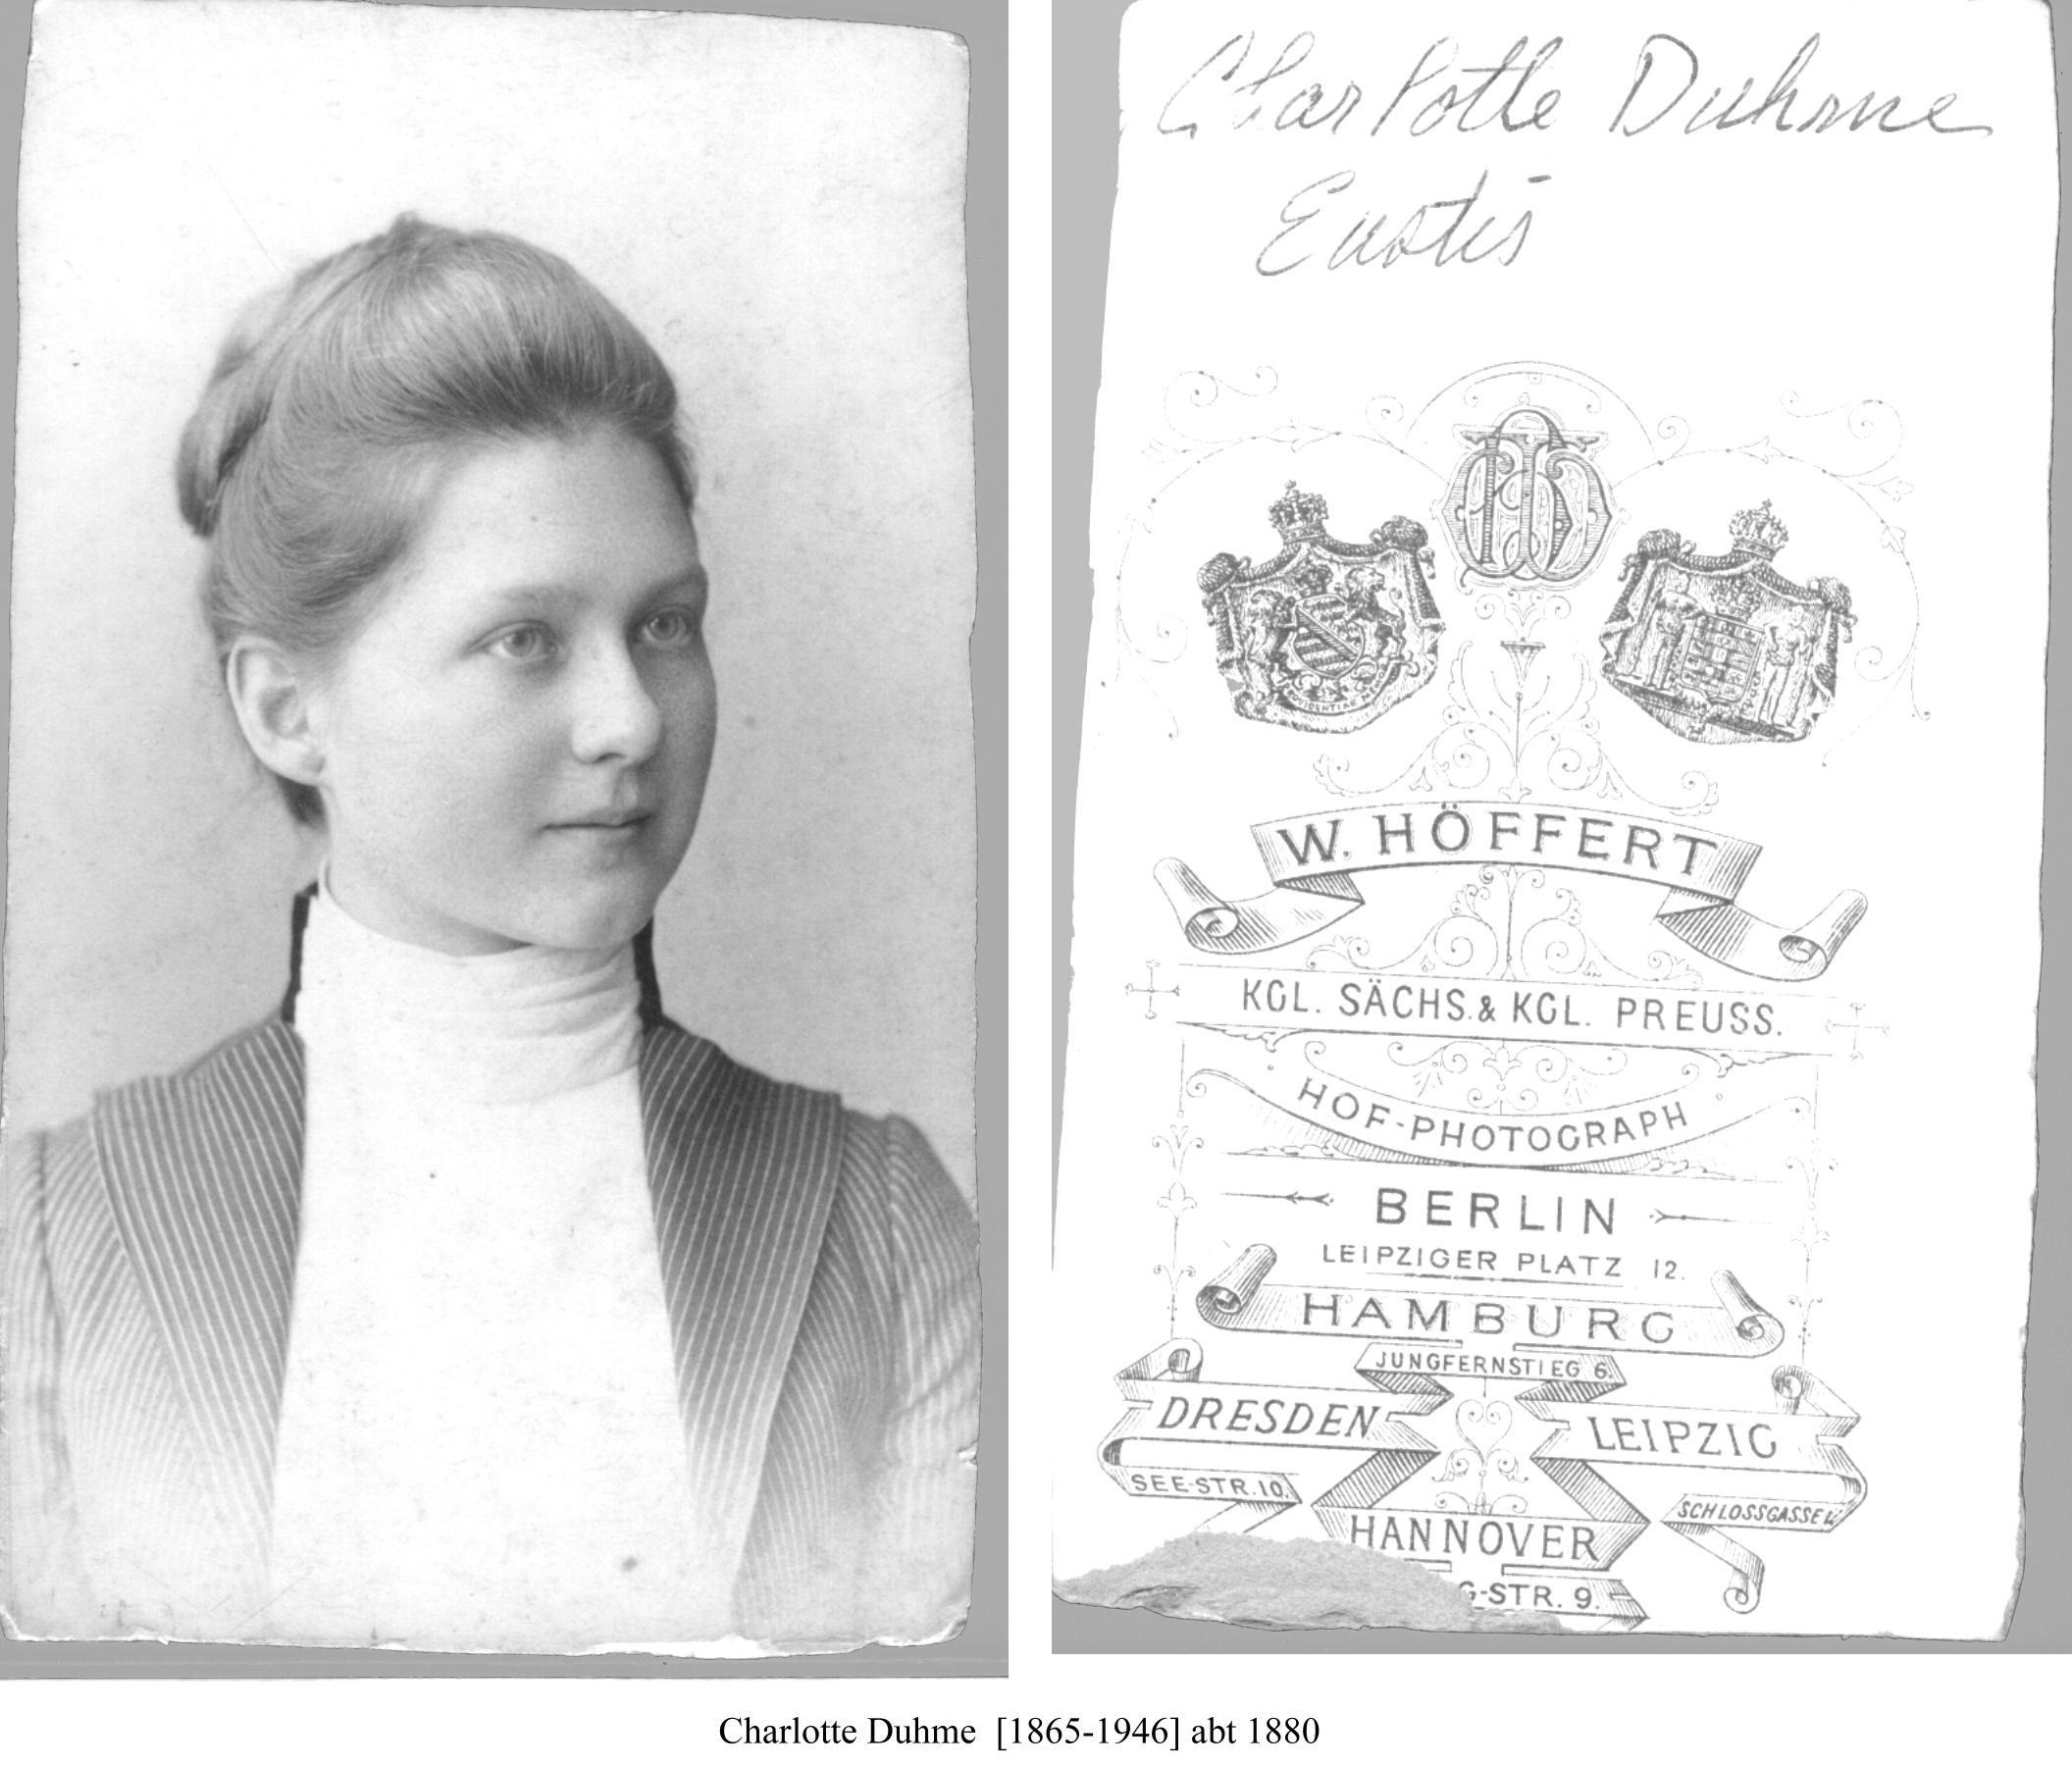 Charlotte Duhme
Eustis
PROVIDENTIAE MEMOR
W. HÖFFERT
KGL. SÄCHS. & KGL. PREUSS.
HOF-PHOTOGRAPH
BERLIN
LEIPZIGER PLATZ 12.
HAMBURG
JUNGFERNSTIEG 6.
DRESDEN
LEIPZIG
SEE-STR. 10.
SCHLOSSGASSE
HANNOVER
G-STR. 9.
Charlotte Duhme [1865-1946] abt 1880